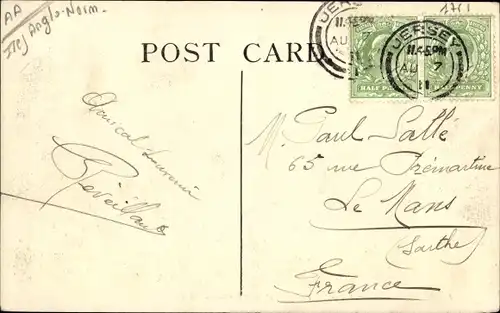 AA
Iles Anglo-Norm.
1751
POST CARD
JERSEY
11.45PM
AU 7
11
JERSEY
11.45PM
AU 7
11
HALF PENNY
HALFPENNY
Amical Souvenir
Réveillaud
M. Paul Sallé
65 rue Prémartine
Le Mans
(Sarthe)
France